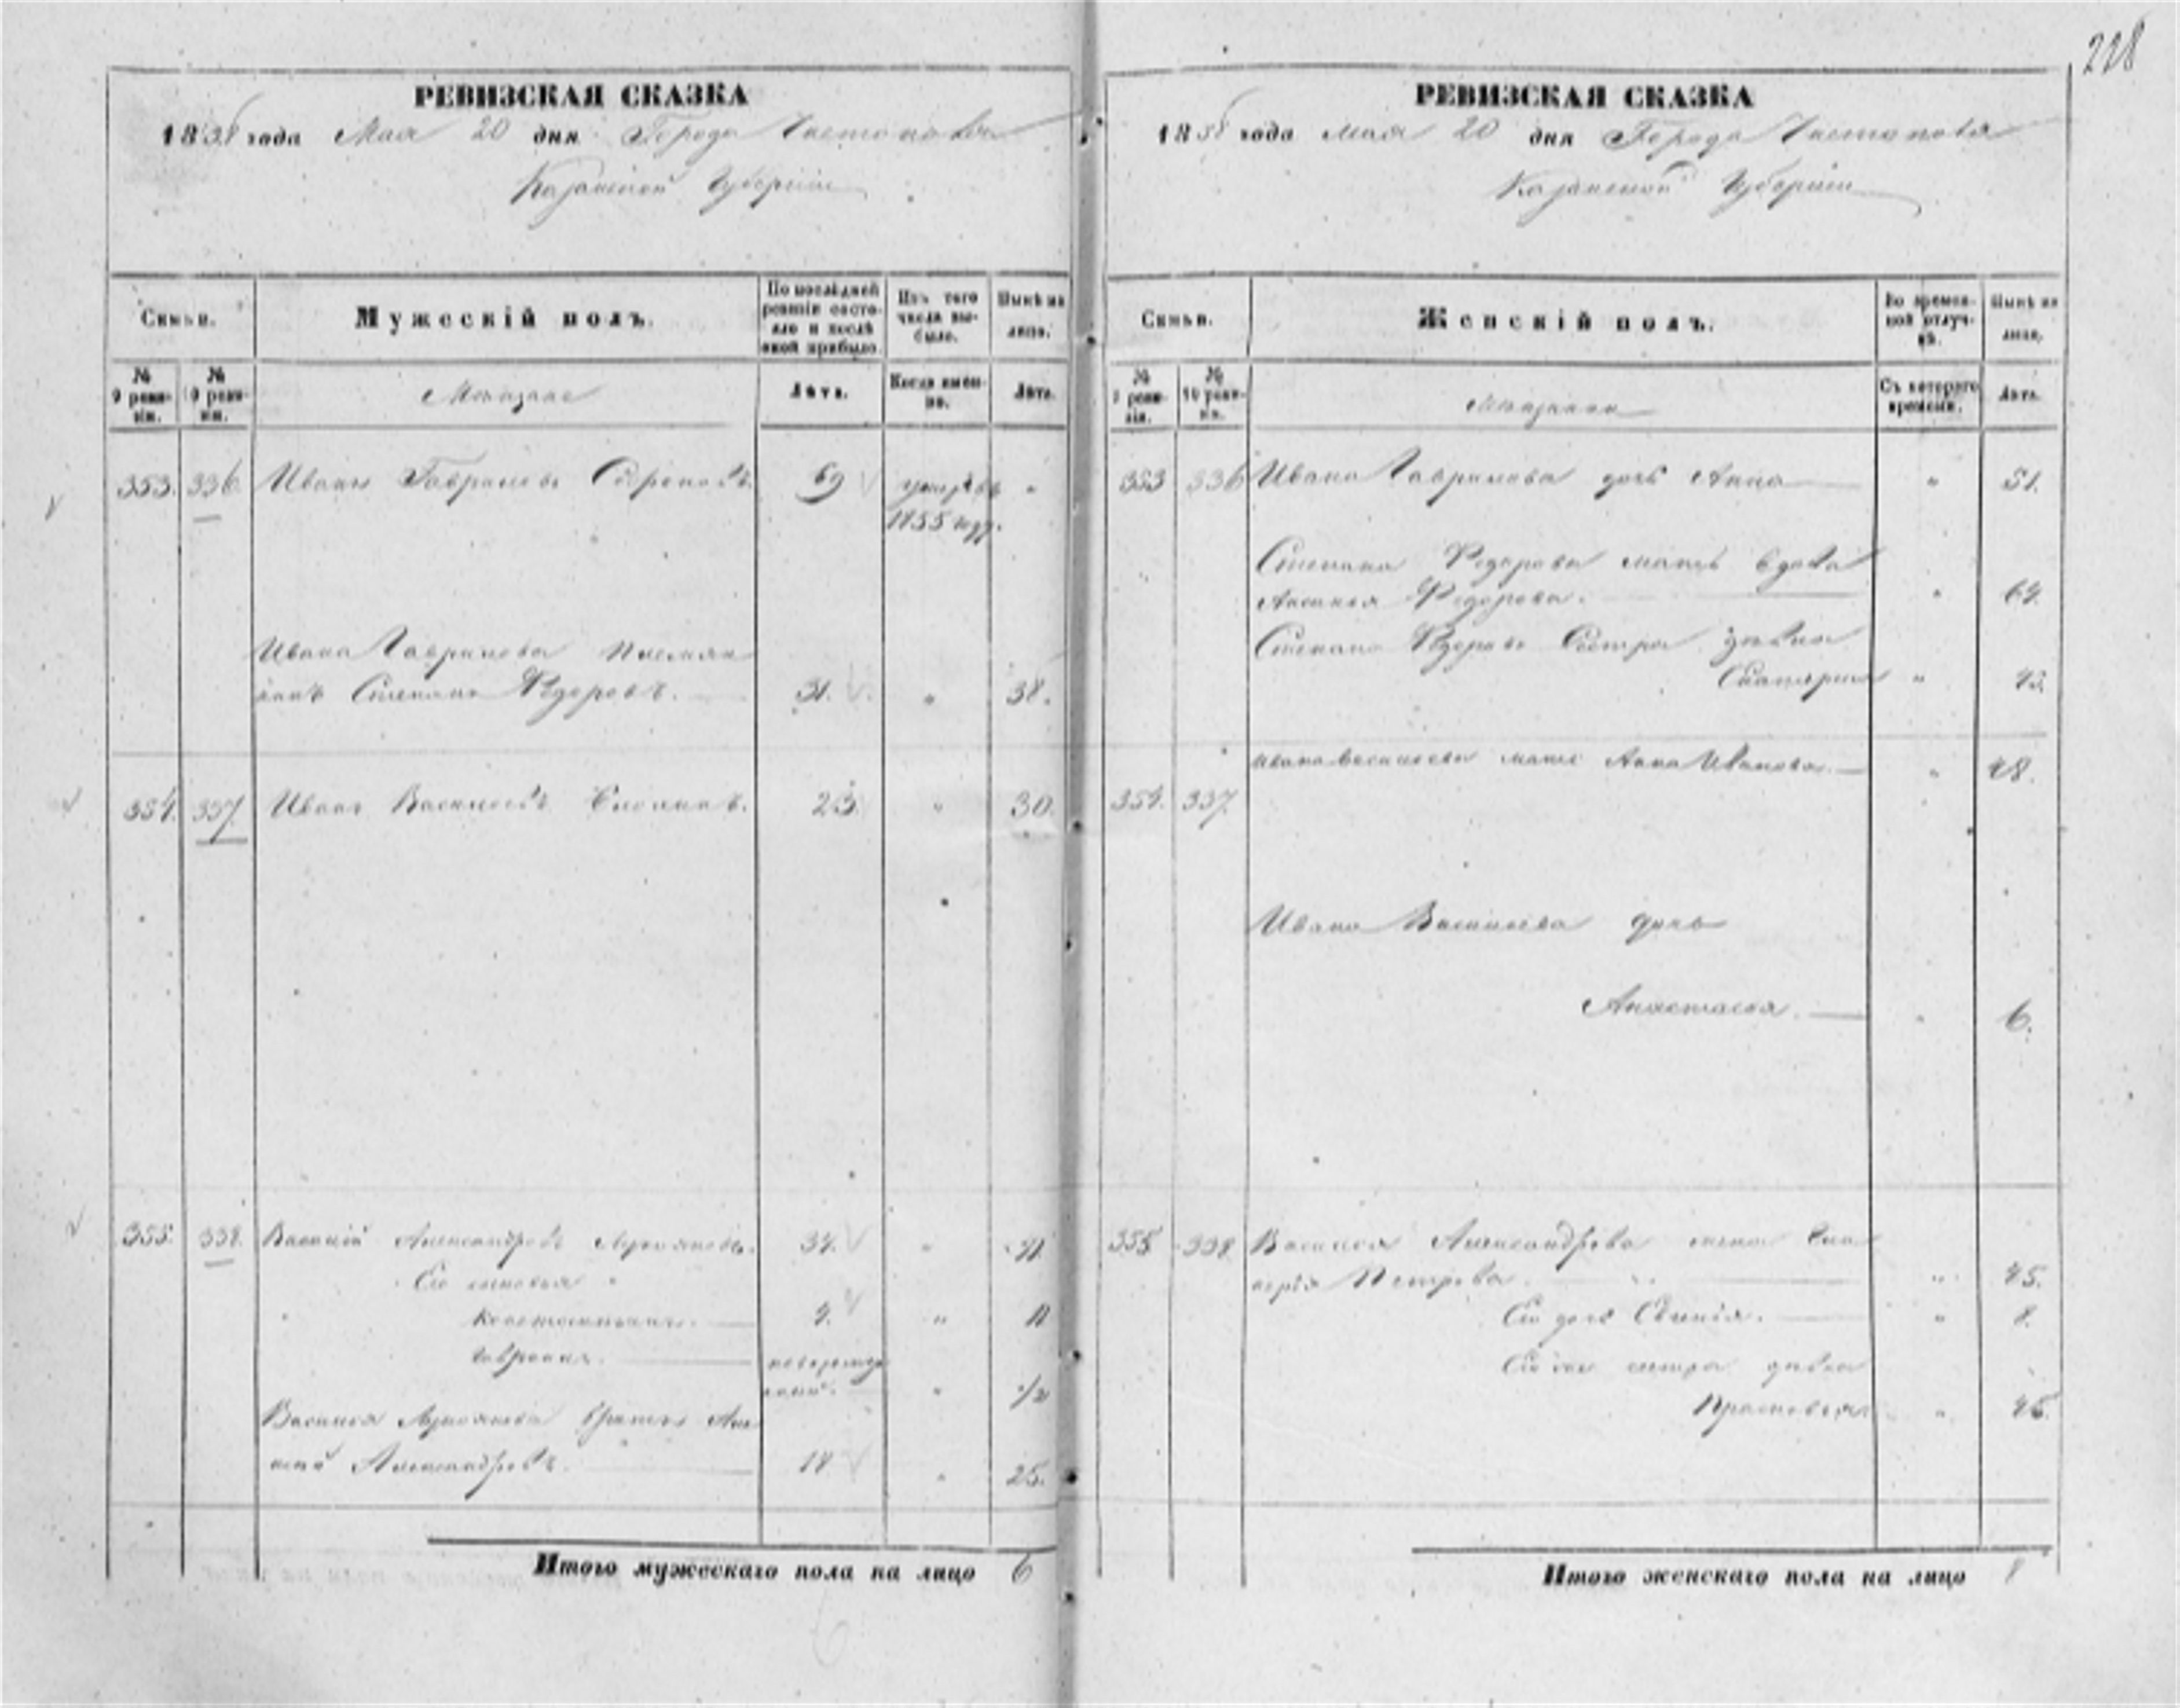 228
РЕВИЗСКАЯ СКАЗКА
1858 года Мая 20 дня Города Чистополя
Казанской Губернии
Семьи.
Мужескій полъ.
По послѣдней ревизіи состояло и послѣ оной прибыло.
Изъ того числа выбыло.
Нынѣ на лицо.
№ 9 ревизіи.
№ 10 ревизіи.
Мещане
Лѣта.
Когда именно.
Лѣта.
353. 336. Иванъ Гавриловъ 69 умеръ въ "
1855 году.
Ивана Гаврилова племян
никъ Степанъ Федоровъ. 31. " 38.
354. 337. Иванъ Васильевъ 23. " 30.
355. 338. Василій Александровъ Лукояновъ. 34. " 41.
Его сыновья
Константинъ. 4. " 11
Гаврила. новорожде
нный. " 1/2
Василья Лукоянова братъ Але
ксѣй Александровъ. 18 " 25.
Итого мужескаго пола на лицо 6
РЕВИЗСКАЯ СКАЗКА
1858 года Мая 20 дня Города Чистополя
Казанской Губерніи
Семьи.
Женскій полъ.
Во временной отлучкѣ.
Нынѣ на лицо.
№ 9 ревизіи.
№ 10 ревизіи.
Мещанки
Съ котораго времени.
Лѣта.
353 336 Ивана Гаврилова дочь Анна " 51.
Степана Федорова мать вдова
Аксинья Федорова. " 64.
Степана Федорова сестра дѣвка
Екатерина " 43.
Ивана Васильева мать Анна Иванова. " 48.
354. 337.
Ивана Васильева дочь
Анастасья. " 6.
355 338 Василья Александрова жена Гли
керія Петрова. " 45.
Его дочь Евгенія. " 8.
Его же сестра дѣвка
Прасковья " 46.
Итого женскаго пола на лицо 8